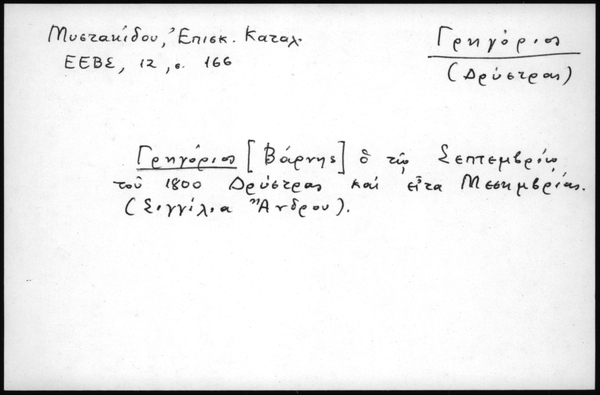 Μυστακίδου, Ἐπισκ. Καταλ.
ΕΕΒΣ, 12, σ. 166
Γρηγόριος
(Δρύστρας)
Γρηγόριος [Βάρνης] ὁ τῷ Σεπτεμβρίῳ
τοῦ 1800 Δρύστρας καὶ εἶτα Μεσημβρίας.
(Σιγγίλια Ἄνδρου).